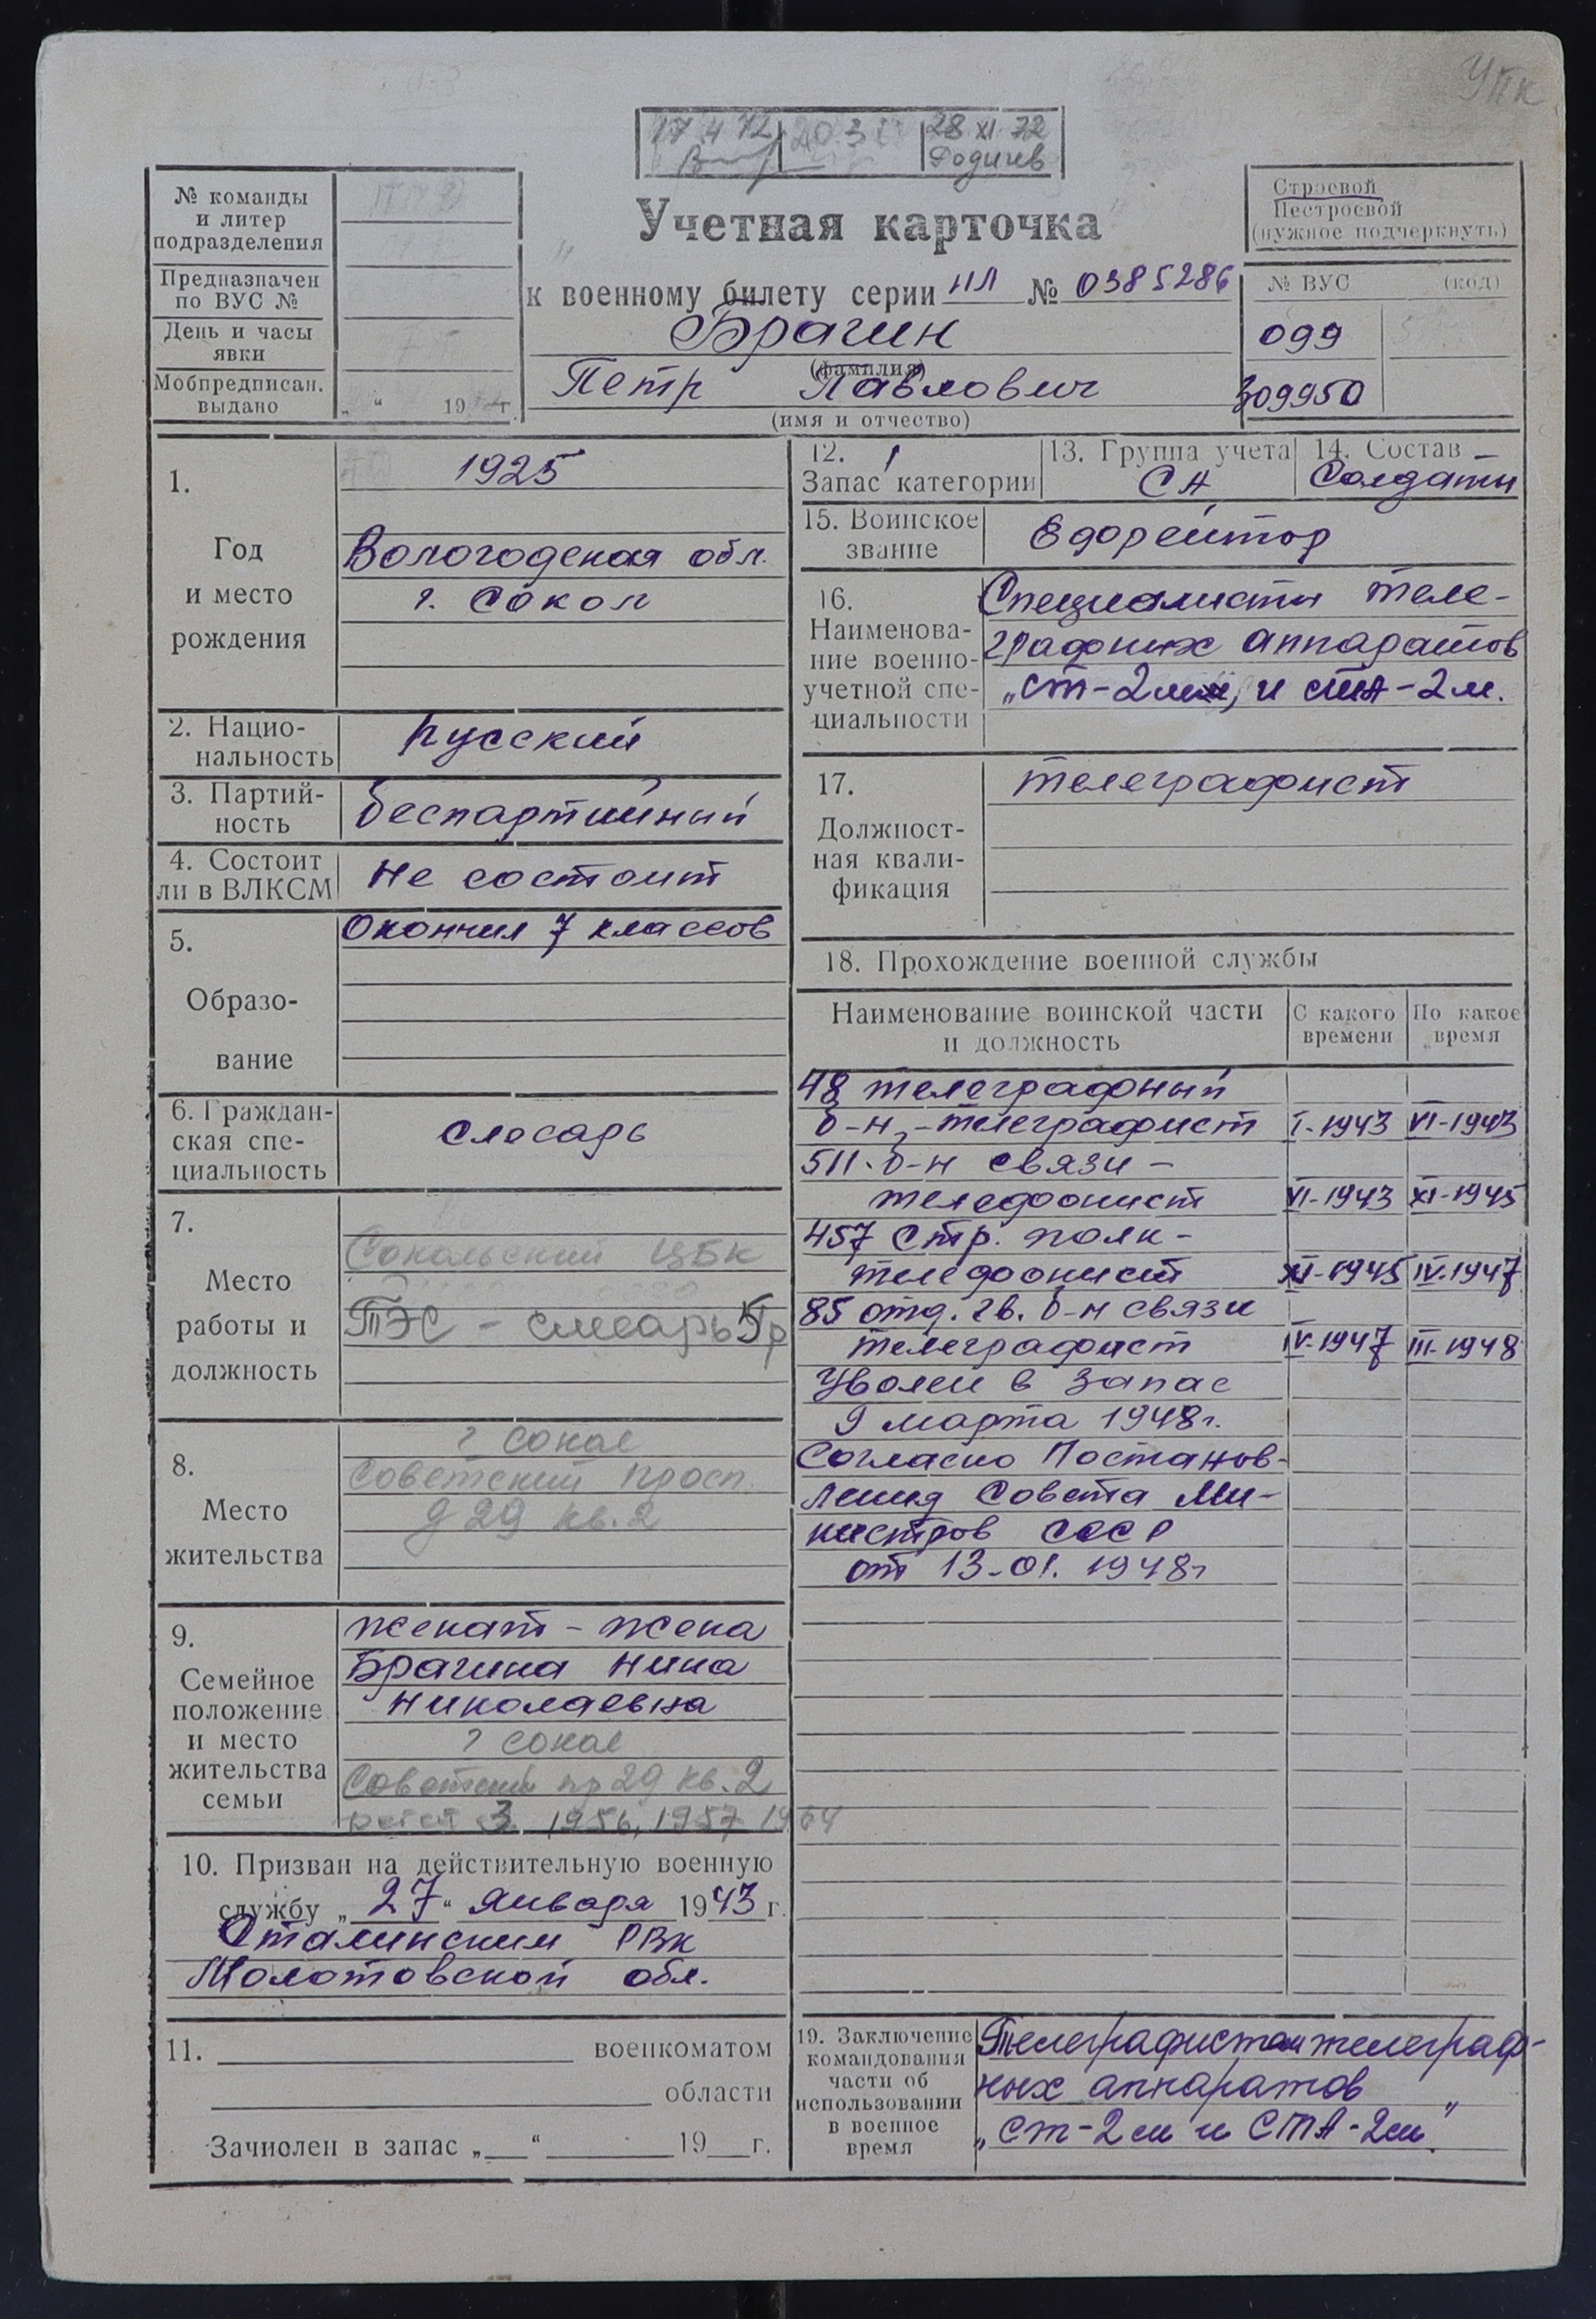 УПК
17 4 72 20 3 28 XI 72
Родичев
№ команды
и литер
подразделения
Предназначен
по ВУС №
День и часы
явки
Мобпредписан.
выдано
„ “ 19 г.
Учетная карточка
к военному билету серии НЛ № 0385286
Брагин
(фамилия)
Петр Павлович
(имя и отчество)
Строевой
Нестроевой
(нужное подчеркнуть)
№ ВУС (код)
099
309950
1.
Год
и место
рождения
1925
Вологодская обл.
г. Сокол
2. Нацио-
нальность
Русский
3. Партий-
ность
беспартийный
4. Состоит
ли в ВЛКСМ
не состоит
5.
Образо-
вание
Окончил 7 классов
6. Граждан-
ская спе-
циальность
слесарь
7.
Место
работы и
должность
Сокольский ЦБК
ТЭС - слесарь 5гр
8.
Место
жительства
г Сокол
Советский просп.
д 29 кв. 2
9.
Семейное
положение
и место
жительства
семьи
женат - жена
Брагина Нина
Николаевна
г Сокол
Советский пр 29 кв. 2
детей 3 1956, 1957 1964
10. Призван на действительную военную
службу „27“ января 1943 г.
Сталинским РВК
Молотовской обл.
11. военкоматом
области
Зачислен в запас „ “ 19 г.
12. 1
Запас категории
13. Группа учета
СА
14. Состав
Солдаты
15. Воинское
звание
Ефрейтор
16.
Наименова-
ние военно-
учетной спе-
циальности
Специалисты теле-
графных аппаратов
„СТ-2м, и СТА-2м.
17.
Должност-
ная квали-
фикация
телеграфист
18. Прохождение военной службы
Наименование воинской части
и должность
С какого
времени
По какое
время
48 телеграфный
б-н, - телеграфист I-1943 VI-1943
511. б-н связи -
телефонист VI-1943 XI-1945
457 стр. полк -
телефонист XI-1945 IV-1947
85 отд. гв. б-н связи
телеграфист IV-1947 III-1948
Уволен в запас
9 марта 1948г.
Согласно Постанов-
ления Совета Ми-
нистров СССР
от 13-01. 1948г
19. Заключение
командования
части об
использовании
в военное
время
Телеграфистом телеграф-
ных аппаратов
„СТ-2м и СТА-2м”